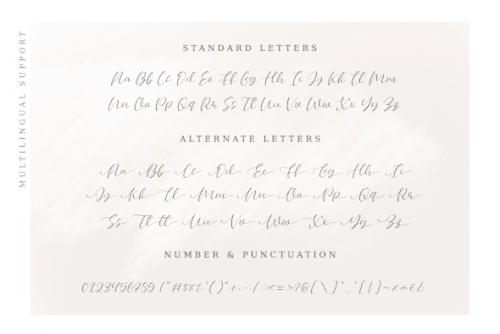 MULTILINGUAL SUPPORT
STANDARD LETTERS
Aa Bb Cc Dd Ee Ff Gg Hh Ii Jj Kk Ll Mm
Nn Oo Pp Qq Rr Ss Tt Uu Vv Ww Xx Yy Zz
ALTERNATE LETTERS
Aa Bb Cc Dd Ee Ff Gg Hh Ii
Jj Kk Ll Mm Nn Oo Pp Qq Rr
Ss Tt tt Uu Vv Ww Xx Yy Zz
NUMBER & PUNCTUATION
0123456789